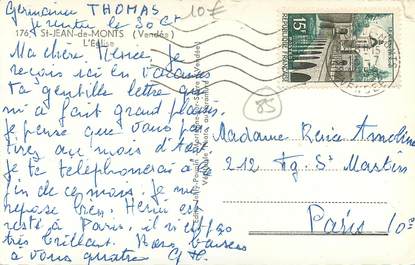 Germaine THOMAS
10€
176 St-JEAN-de-MONTS (Vendée)
L'Eglise
Ma chère Renée, Je
reçois ici en vacances
ta gentille lettre qui
m'a fait grand plaisir.
Je pense que vous
au mois d'Août
Je te téléphonerai à la
fin de ce mois. Je me
repose bien. Henri est
resté à Paris, il n'est pas
très brillant. Bons baisers
à vous quatre G H.
15F
85
Madame Renée
212 Fg. St Martin
Paris 10e